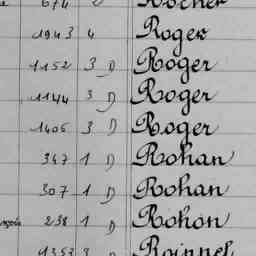 674 Rocher
1943 4 Roger
1152 3 D Roger
1144 3 D Roger
1406 3 D Roger
347 1 D Rohan
307 1 D Rohan
238 1 D Rohon
1353 3 Roinnel